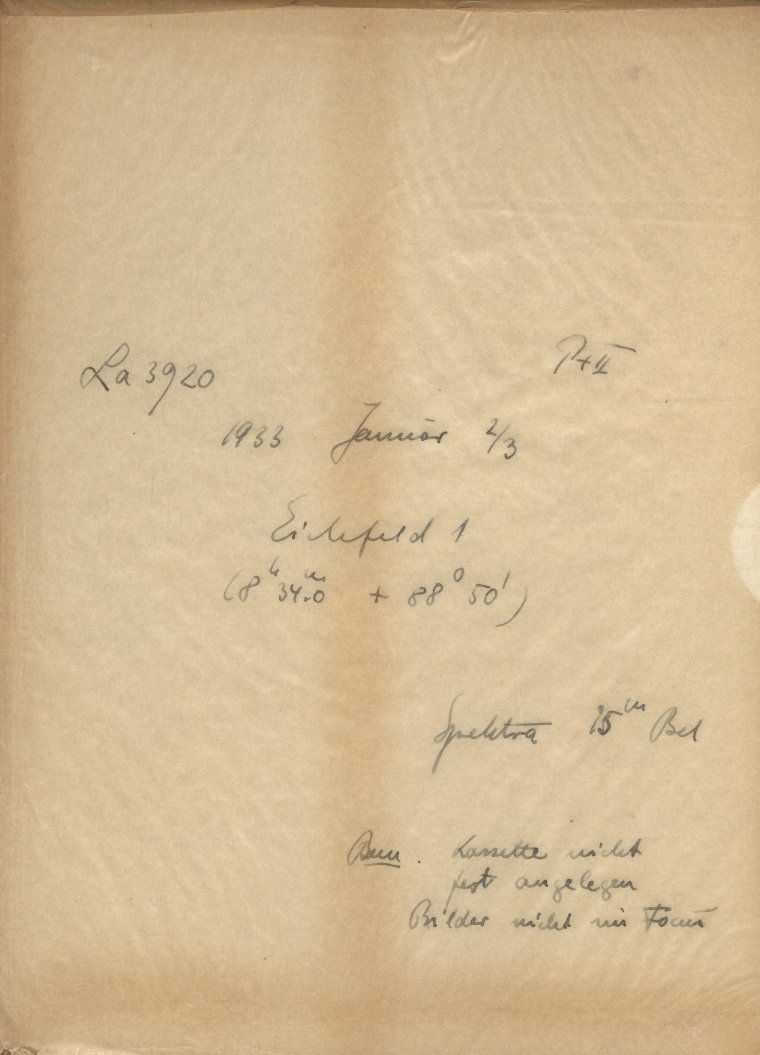 La 3920 P + II
1933 Januar 2/3
Eichfeld 1
(8ʰ 34ᵐ.0 + 88° 50')
Spektra 15ᵐ Bel
Bem. Kassette nicht
fest angelegen
Bilder nicht im Focus